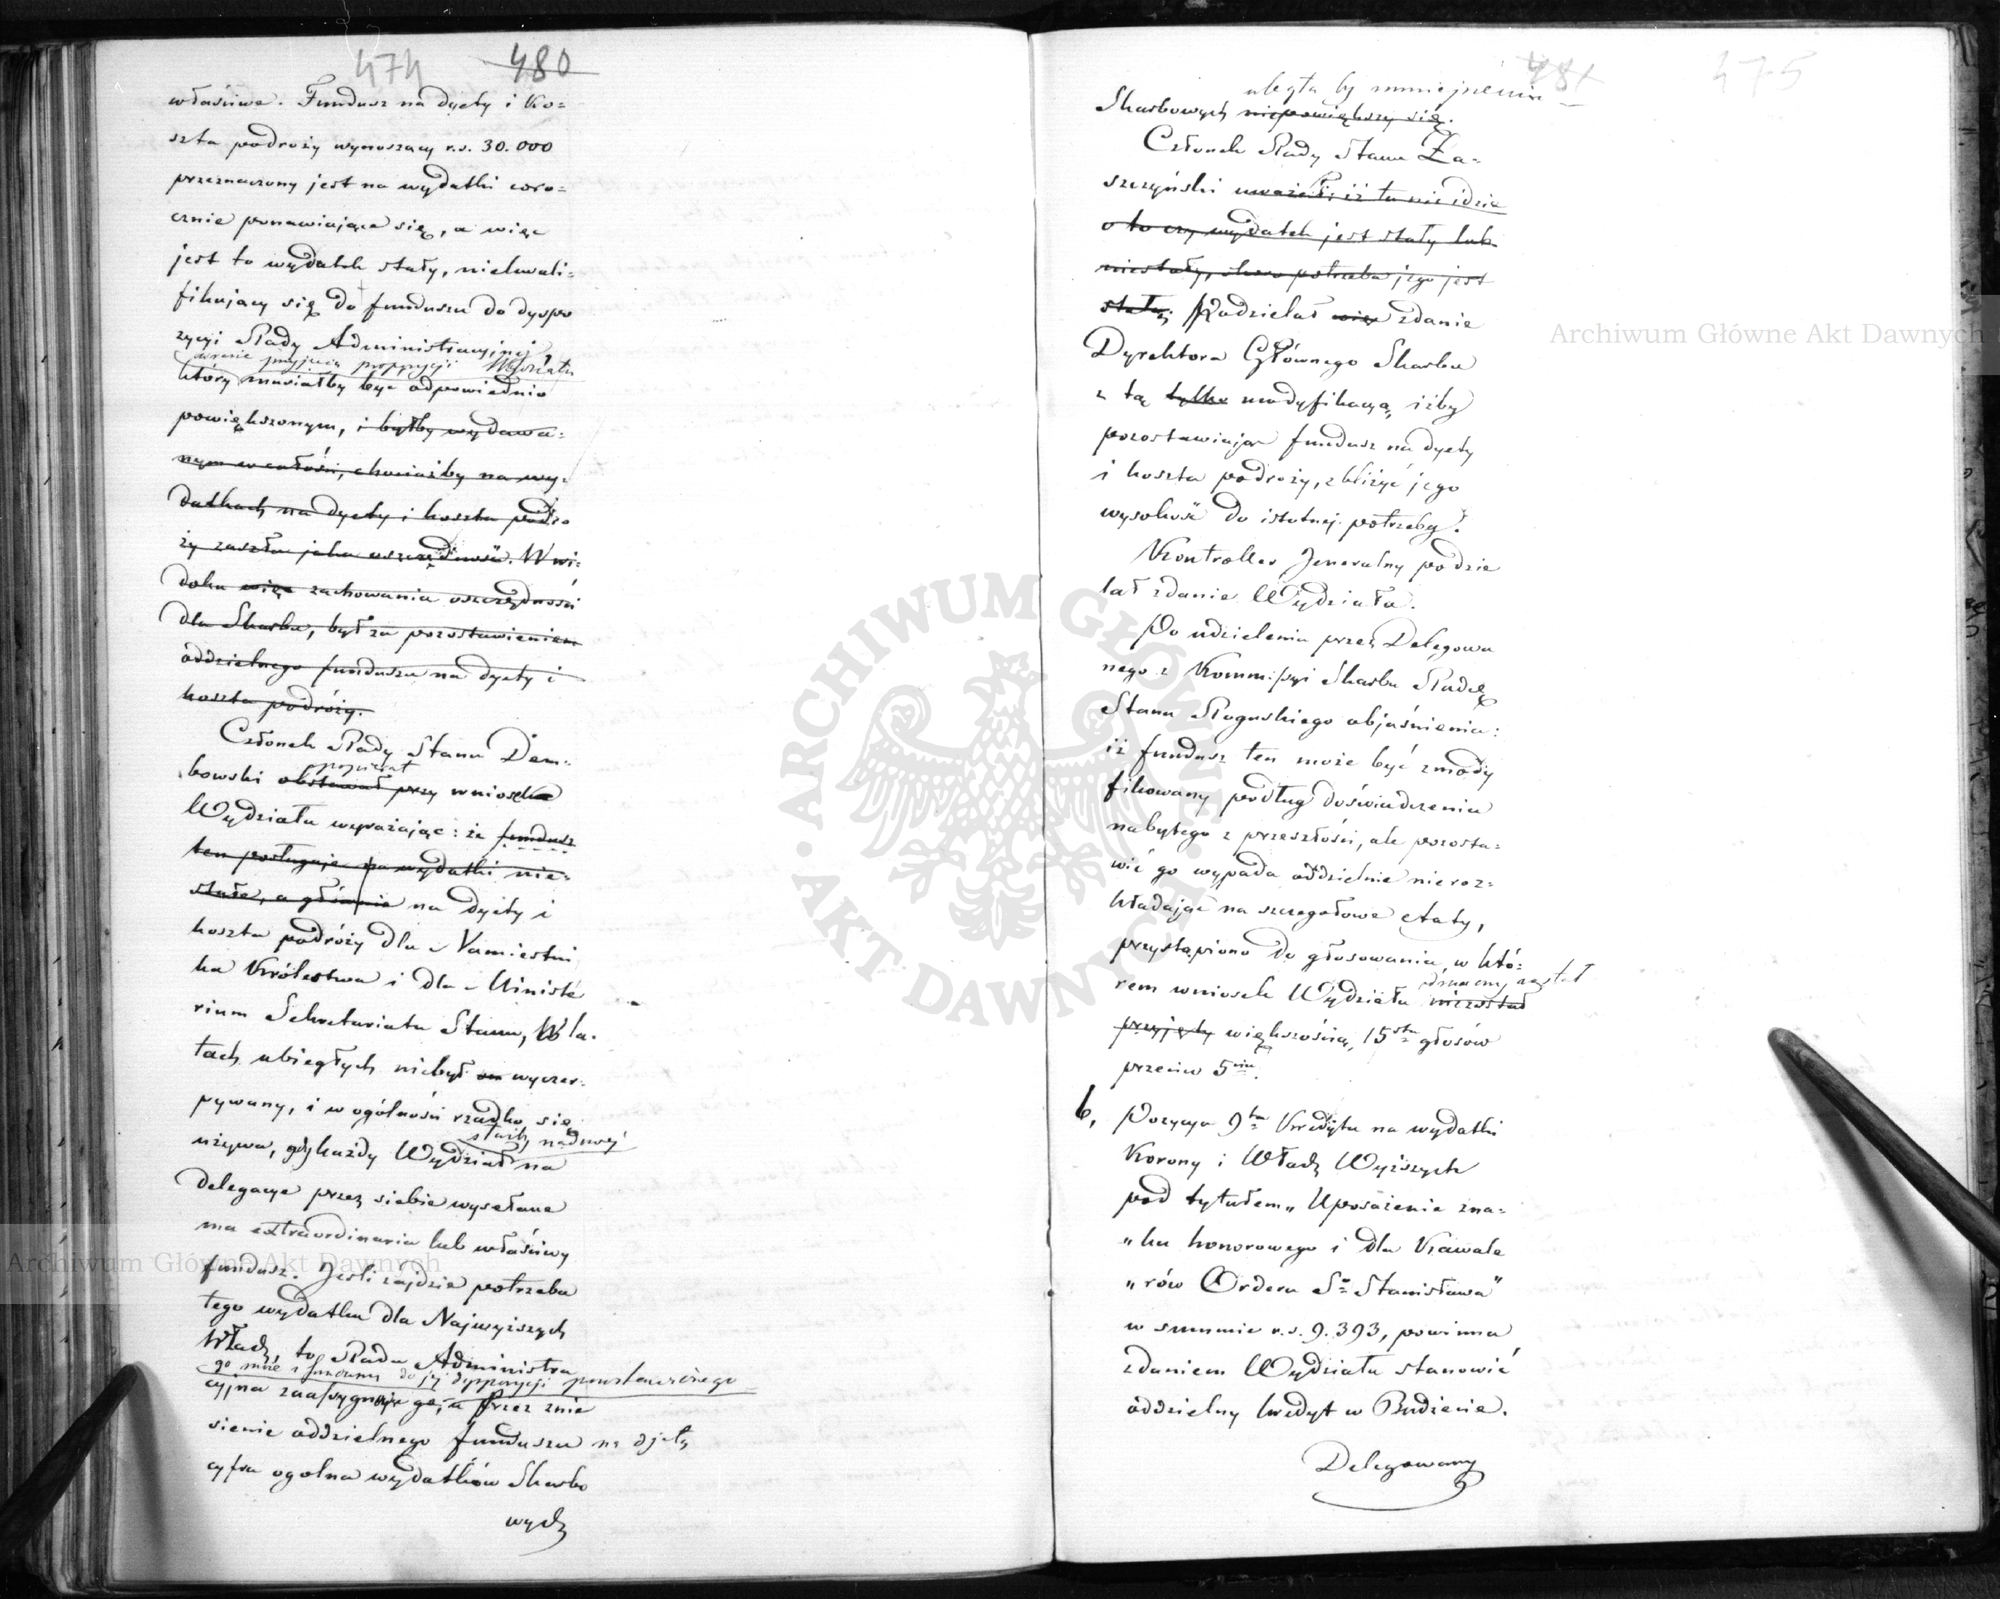 474 480
właściwe. Fundusz na dyety i ko=
szta podroży wynoszący r.s. 30.000
przeznaczony jest na wydatki coro=
cznie ponawiające się, a więc
jest to wydatek stały, niekwali=
fikujący się do funduszu do dyspo
zycyi Rady Administracyjnej,
w razie przyjęcia proppozycji Wydziału
który musiałby być odpowiednio
powiększonym, i byłby wydawa=
nym w całości, chociażby na wy=
datkach na dyety i koszta podro
ży zaszła jaka oszczędność. W wi=
doku więc zachowania oszczędności
dla Skarbu, był za pozostawieniem
oddzielnego funduszu na dyety i
koszta podróży.
Członek Rady Stanu Dem=
popierał
bowski obstawał przy wniosek
Wydziału wyrażając: że fundusz
ten posługuje na wydatki nie=
stałe, a głównie na dyety i
koszta podróży dla Namiestni
ka Królestwa i dla Ministe
rium Sekretariatu Stanu, W la=
tach ubiegłych niebył on wyczer=
pywany, i w ogólności rzadko się
używa, gdyż każdy Wydział na
Delegacye przez siebie wysełane
ma extraordinaria lub właściwy
fundusz. Jeśli zajdzie potrzeba
tego wydatku dla Najwyższych
Władz, to Rada Administra
go może z funduszu do jej dyspozycji pozostawionego
cyjna zaassygnuje go, a przez znie
sienie oddzielnego funduszu na dyety
cyfra ogólna wydatków Skarbo
wych
481 475
uległa by zmniejszeniu
Skarbowych niepowiększy się.
Członek Rady Stanu Ła=
szczyński uważał, iż tu nie idzie
o to czy wydatek jest stały lub
niestały, skoro potrzeba jego jest
stałą; Podzielał więc zdanie
Dyrektora Głównego Skarbu
z tą tylko modyfikacyą, iżby
pozostawiając fundusz na dyety
i koszta podroży, zbliżyć jego
wysokość do istotnej potrzeby.
Kontroller Jeneralny podzie
lał zdanie Wydziału.
Po udzieleniu przez Delegowa
nego z Kommissyi Skarbu Radcę
Stanu Roguskiego objaśnienia:
iż fundusz ten może być zmody
fikowany podług doświadczenia
nabytego z przeszłości, ale pozosta=
wić go wypada oddzielnie nieroz=
kładając na szczegółowe etaty,
przystąpiono do głosowania, w któ=
odrzucony został
rem wniosek Wydziału niezostał
przyjęty większością 15stu głosów
przeciw 5ciu.
6, Pozycya 9ta Kredytu na wydatki
Korony i Władz Wyższych
pod tytułem „Uposażenie zna=
„ku honorowego i dla Kawale
„rów Orderu Sgo Stanisława"
w summie r.s. 9.393, powinna
zdaniem Wydziału stanowić
oddzielny kredyt w Budżecie.
Delegowany
ARCHIWUM GŁÓWNE AKT DAWNYCH
Archiwum Główne Akt Dawnych
Archiwum Główne Akt Dawnych